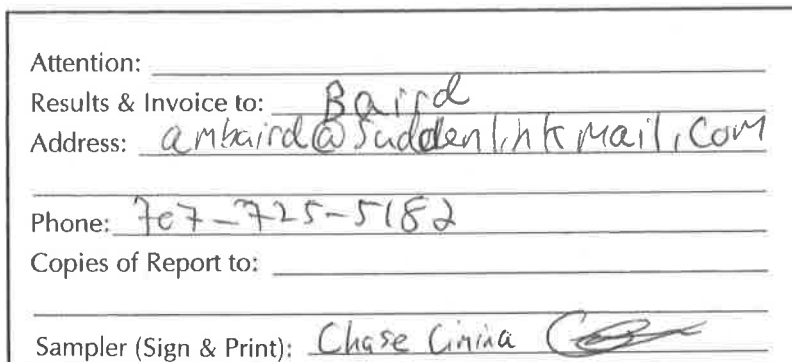 Attention:
Results & Invoice to: Baird
Address: ambaird@suddenlinkmail.com
Phone: 707-725-5182
Copies of Report to:
Sampler (Sign & Print): Chase